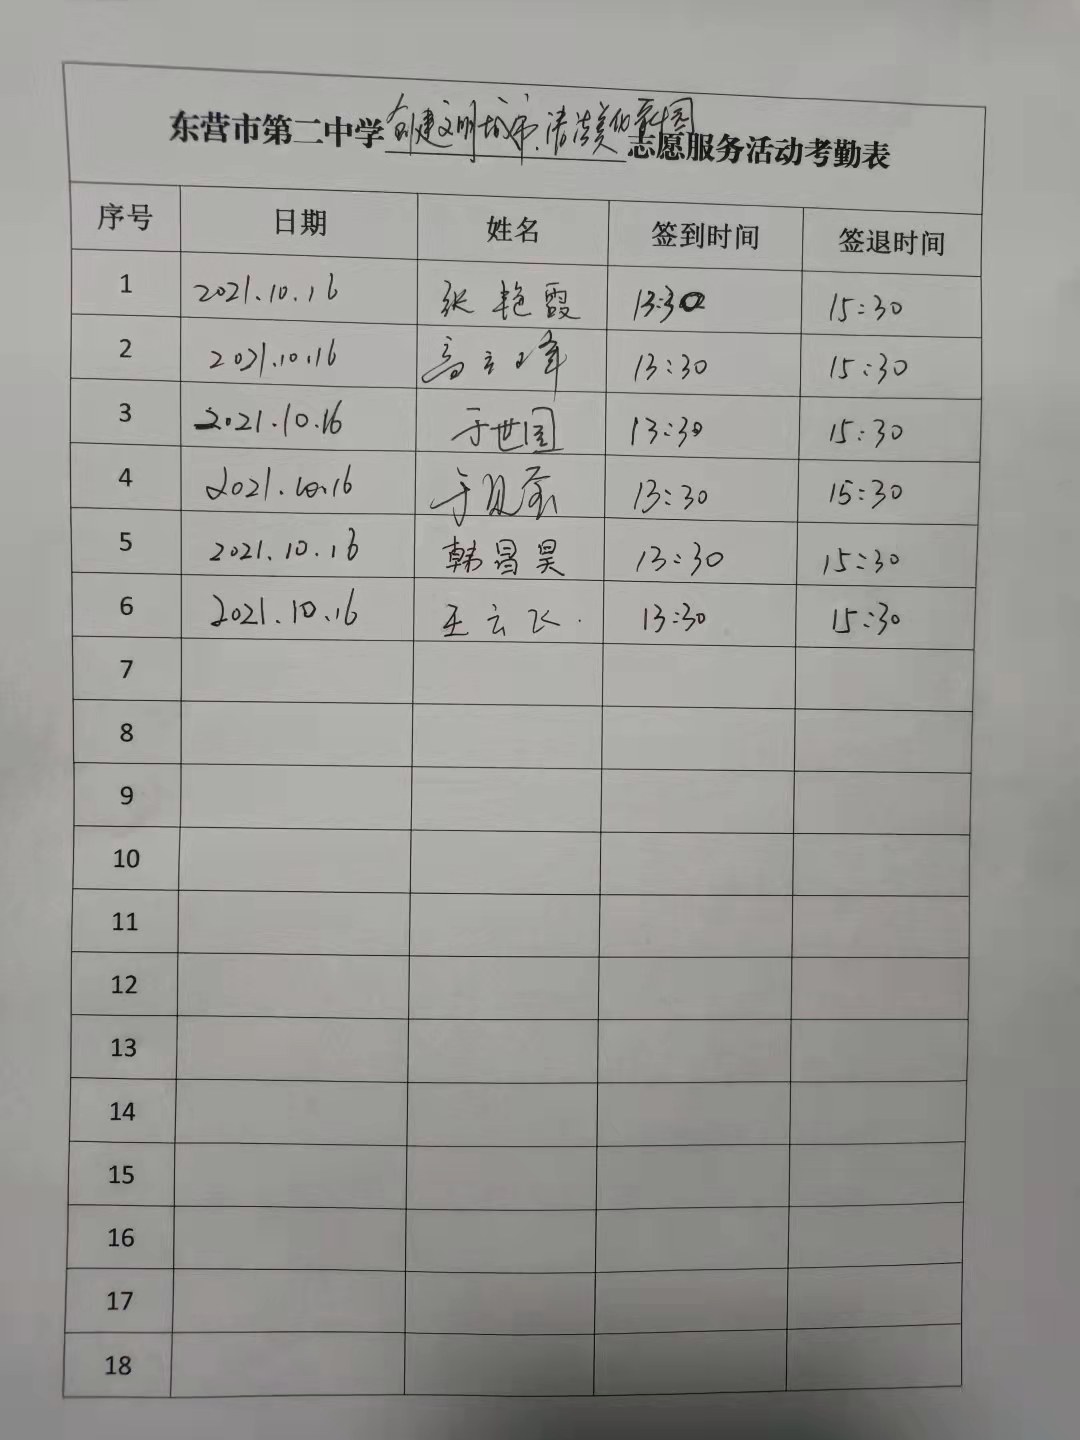 东营市第二中学创建文明城市、清洁美化家园志愿服务活动考勤表
序号 日期 姓名 签到时间 签退时间
1 2021.10.16 张艳霞 13:30 15:30
2 2021.10.16 高立峰 13:30 15:30
3 2021.10.16 于世国 13:30 15:30
4 2021.10.16 于 13:30 15:30
5 2021.10.16 韩昌昊 13:30 15:30
6 2021.10.16 王云飞. 13:30 15:30
7
8
9
10
11
12
13
14
15
16
17
18